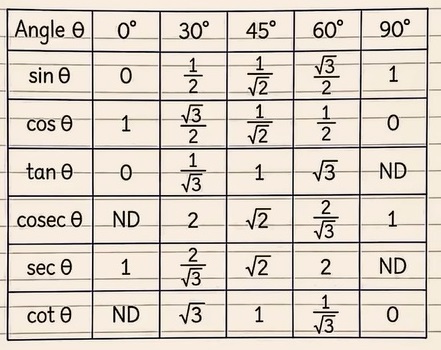 Angle θ 0° 30° 45° 60° 90°
sin θ 0 1/2 1/√2 √3/2 1
cos θ 1 √3/2 1/√2 1/2 0
tan θ 0 1/√3 1 √3 ND
cosec θ ND 2 √2 2/√3 1
sec θ 1 2/√3 √2 2 ND
cot θ ND √3 1 1/√3 0